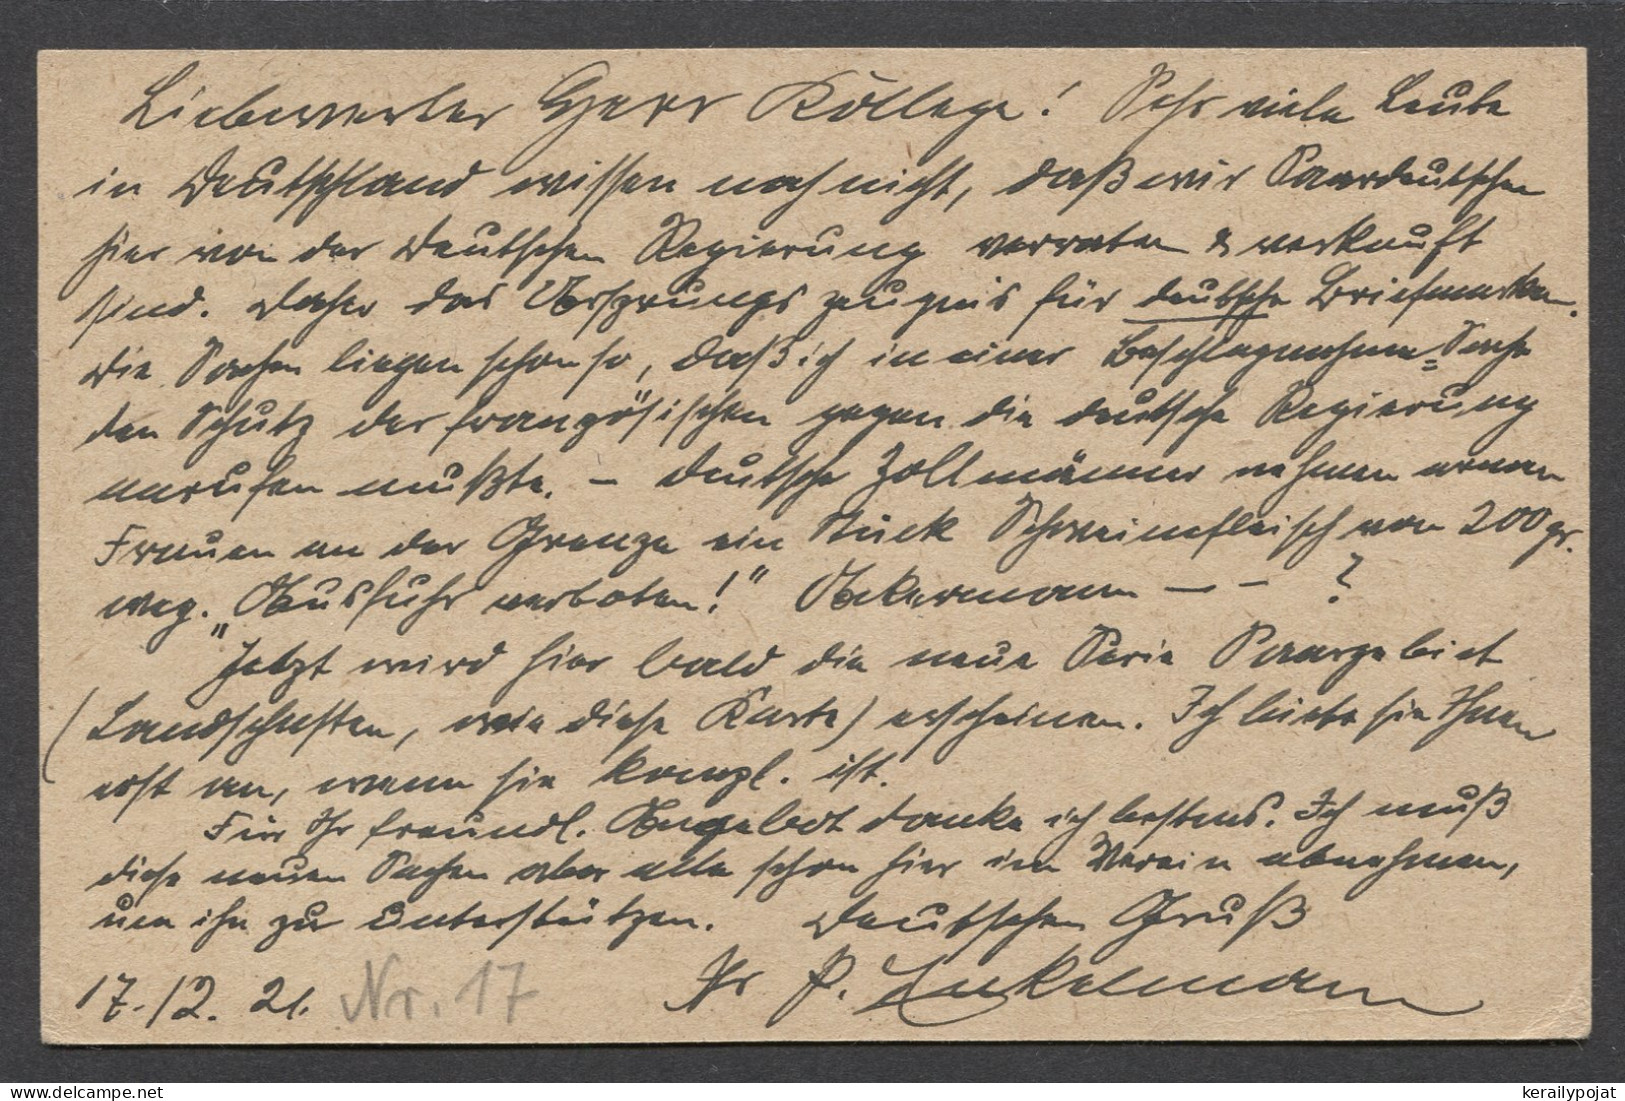 Liebwerter Herr Kollege! Sehr viele Leute
in Deutschland wissen noch nicht, daß wir Saardeutschen
hier von der Deutschen Regierung verraten & verkauft
sind. Daher das Ursprungszeugnis für deutsche Briefmarken.
Die Sachen liegen schon so, daß ich in einer Beschlagnahme=Sache
den Schutz der französischen gegen die deutsche Regierung
anrufen mußte. – Deutsche Zollmänner nehmen armen
Frauen an der Grenze ein Stück Schweinefleisch von 200 gr.
weg. „Ausfuhr verboten!" Ackermann – – ?
Jetzt wird hier bald die neue Serie Saargebiet
(Landschaften, wie diese Karte) erscheinen. Ich biete sie Ihnen
erst an, wenn sie kompl. ist.
Für Ihr freundl. Angebot danke ich bestens. Ich muß
diese neuen Sachen aber alle schon hier im Verein abnehmen,
um ihn zu unterstützen. Deutschen Gruß
17.12.21. Nr. 17 Ihr P.